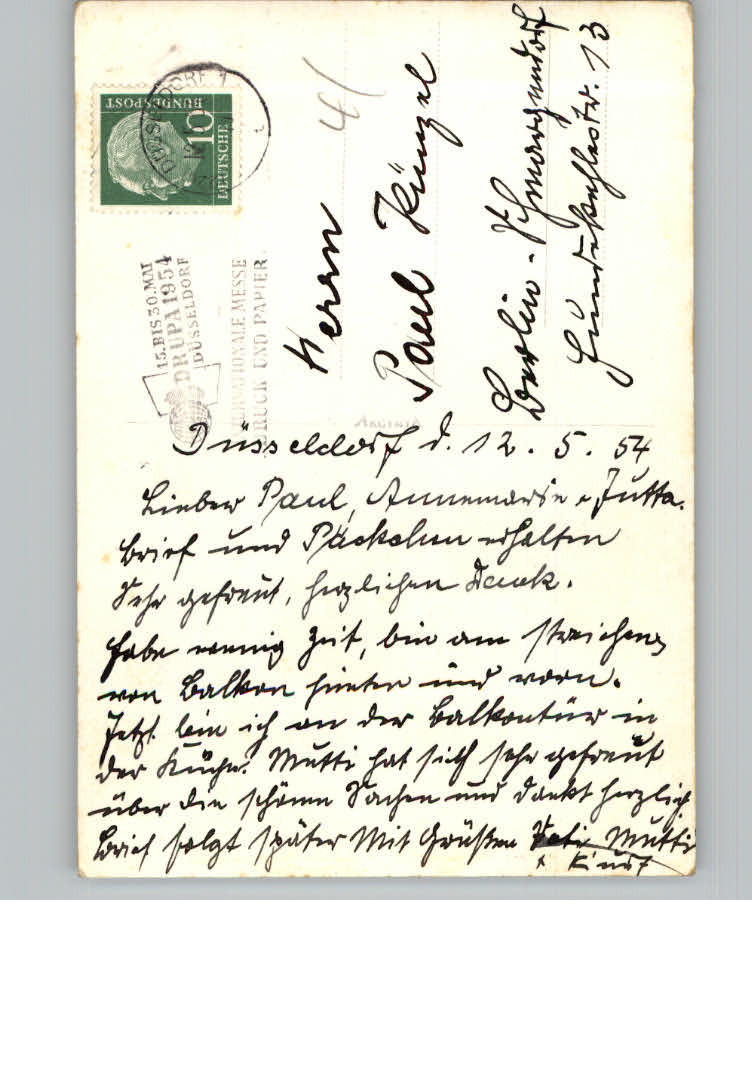 DEUTSCHE
BUNDESPOST
10
DÜSSELDORF 1
15. BIS 30. MAI
DRUPA 1954
DÜSSELDORF
INTERNATIONALE MESSE
DRUCK UND PAPIER
Herrn
Paul Künzel
Berlin-Schmargendorf
Hundekehlestr. 13
Düsseldorf d. 12. 5. 54
Lieber Paul, Annemarie u. Jutta.
Brief und Päckchen erhalten
Sehr gefreut, herzlichen Dank.
Habe wenig Zeit, bin am streichen,
von Balkon hinten und vorn.
Jetzt bin ich an der Balkontür in
der Küche. Mutti hat sich sehr gefreut
über die schönen Sachen und dankt herzlich.
Brief folgt später Mit Grüßen Vati Mutti
Kurt